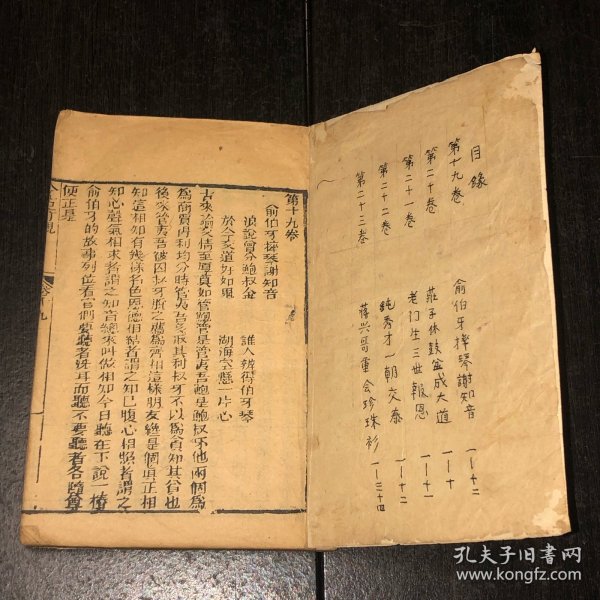 目錄
第十九卷 俞伯牙摔琴謝知音 一一十二
第二十卷 莊子休鼓盆成大道 一一十
第二十一卷 老门生三世報恩 一一十一
第二十二卷 鈍秀才一朝交泰 一一十二
第二十三卷 蔣兴哥重会珍珠衫 一一三十四
第十九卷
俞伯牙摔琴謝知音
浪說曾分鮑叔金 誰人辨得伯牙琴
於今交道奸如鬼 湖海空懸一片心
古來論交情至厚真如管鮑管是管夷吾鮑是鮑叔牙他兩個為
為商賈內利均分時管夷吾多取其利叔牙不以為貪知其貧也
後來管夷吾被囚叔牙脫之薦為齊相這樣朋友纔是個真正相
知這相知有幾樣名色恩德相結者謂之知己腹心相照者謂之
知心聲氣相求者謂之知音總來叫做相知今日聽在下說一樁
俞伯牙的故事列位看官們要聽者洗耳而聽不要聽者各隨尊
便正是
今古奇觀
孔夫子旧书网
www.kongfz.com